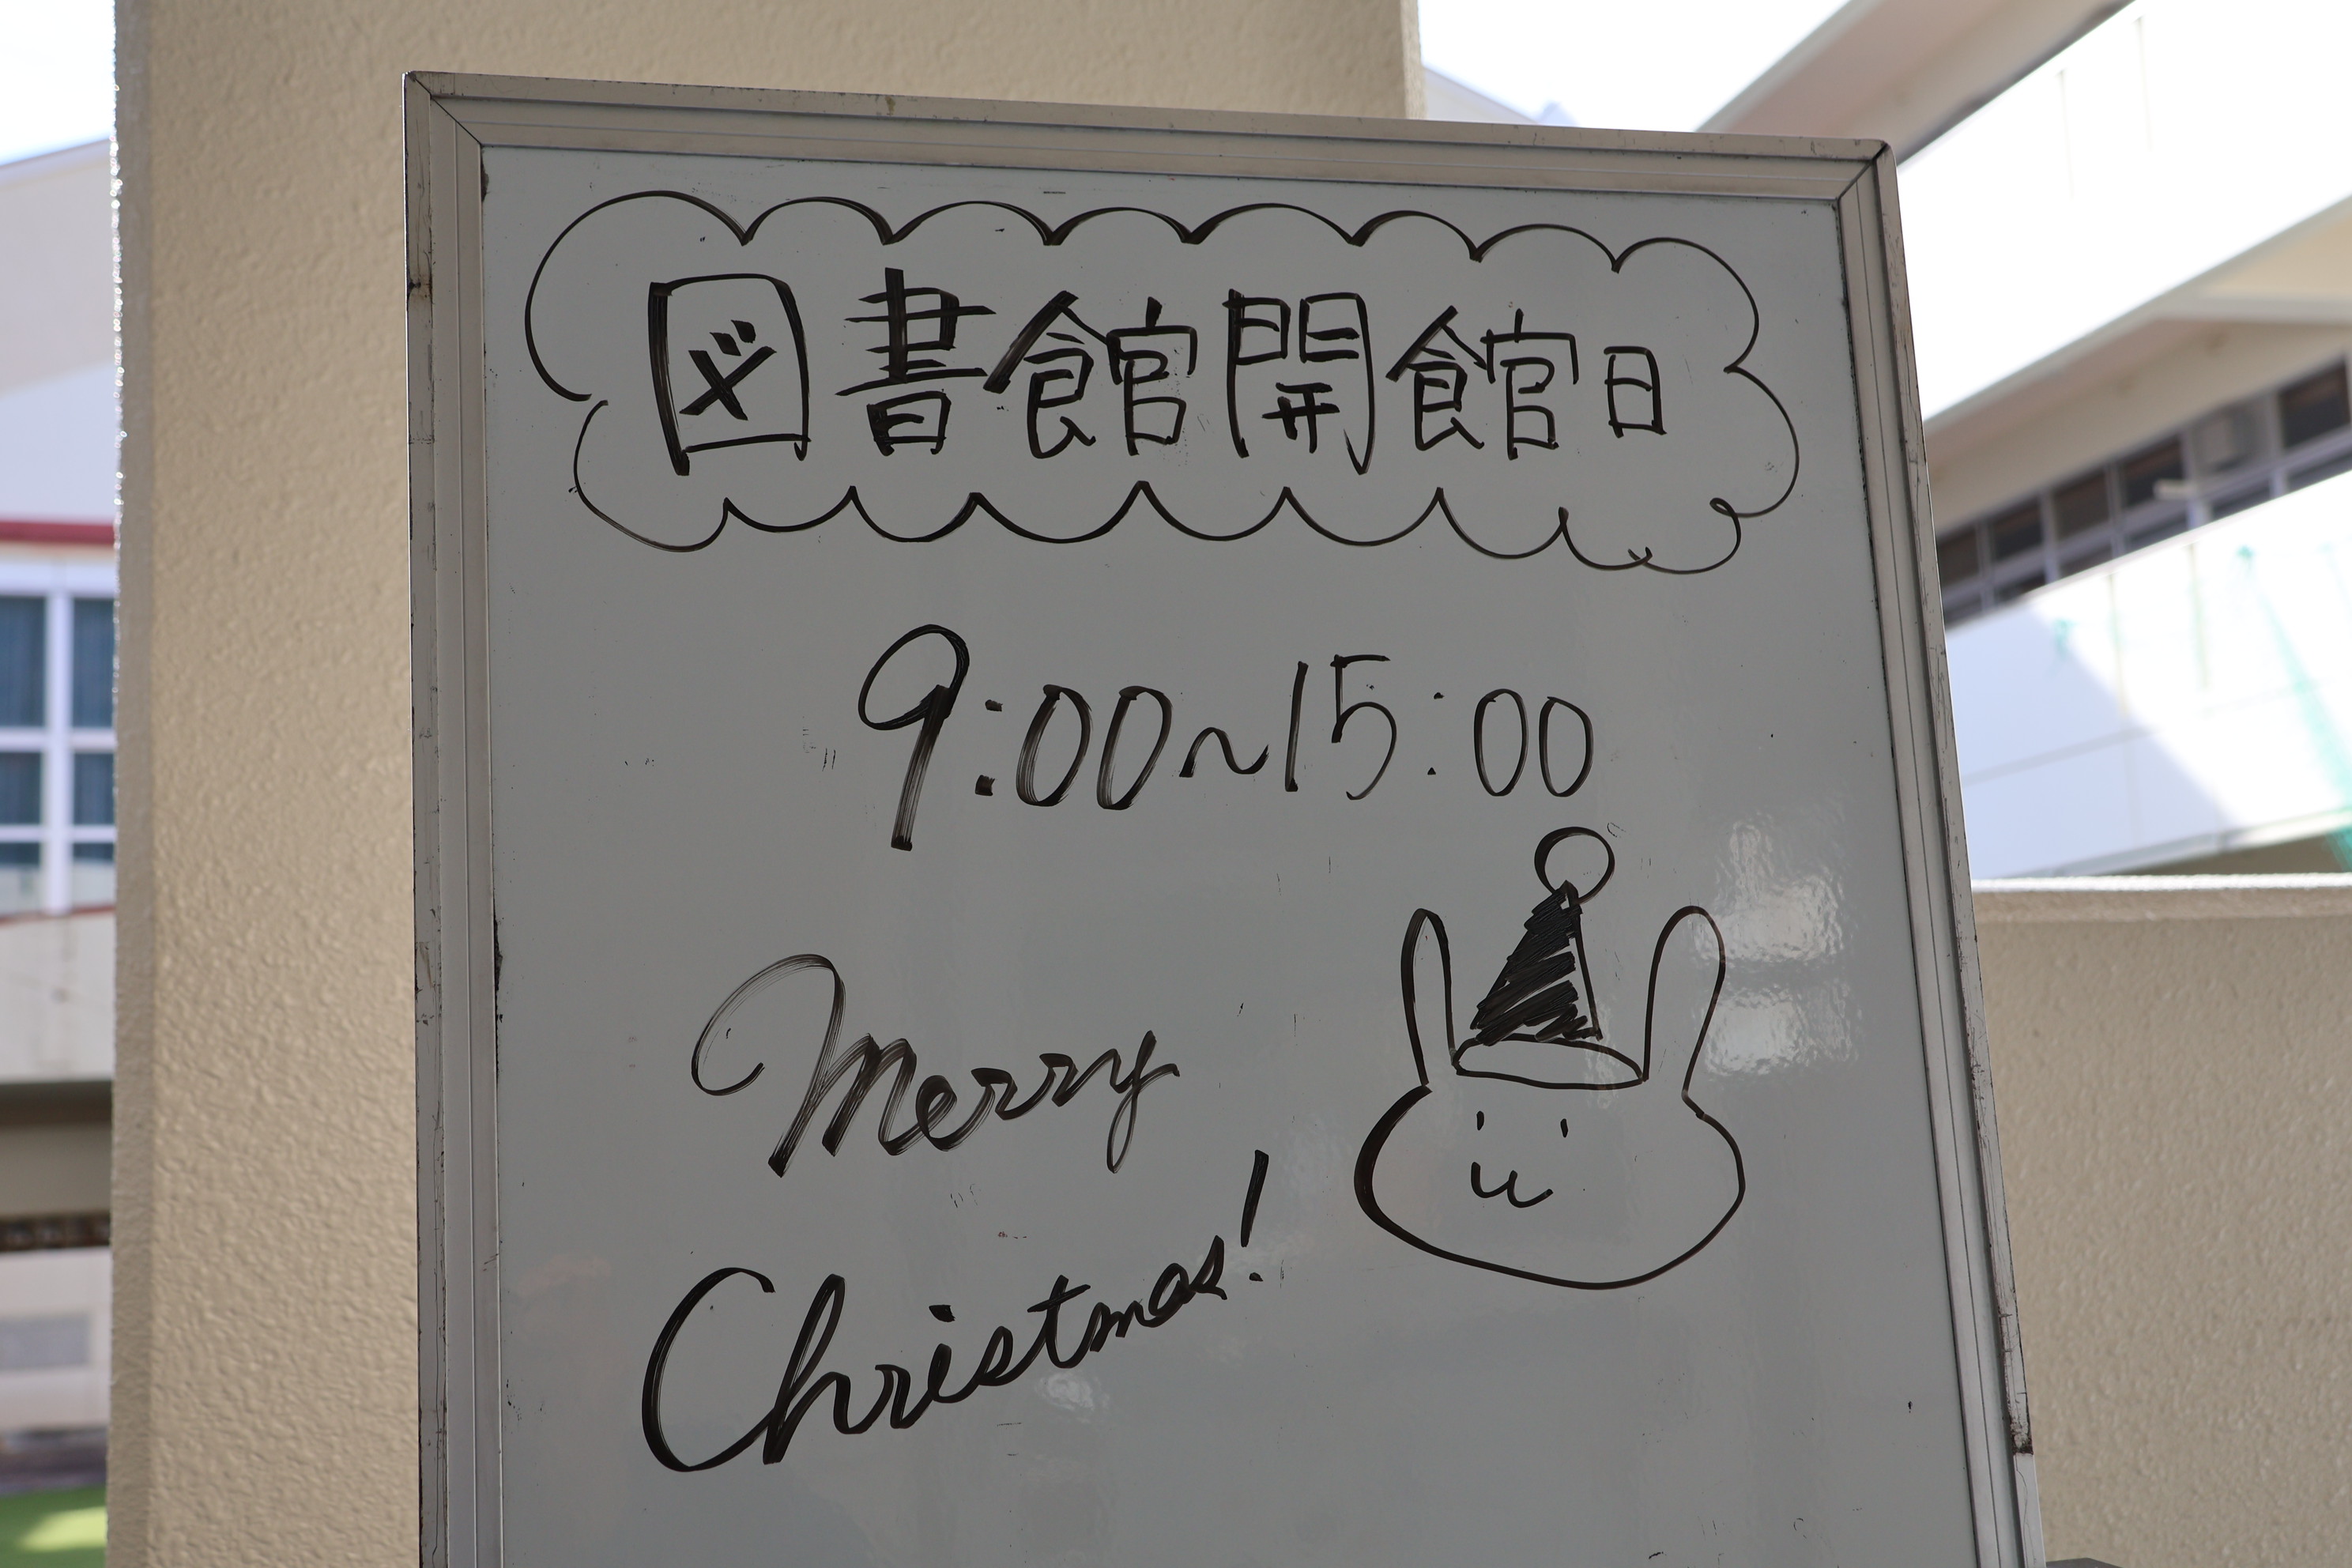 図書館開館日
9:00~15:00
Merry
Christmas!